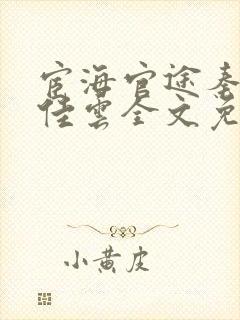 宦海官途秦
佳雲全文免
小黄皮